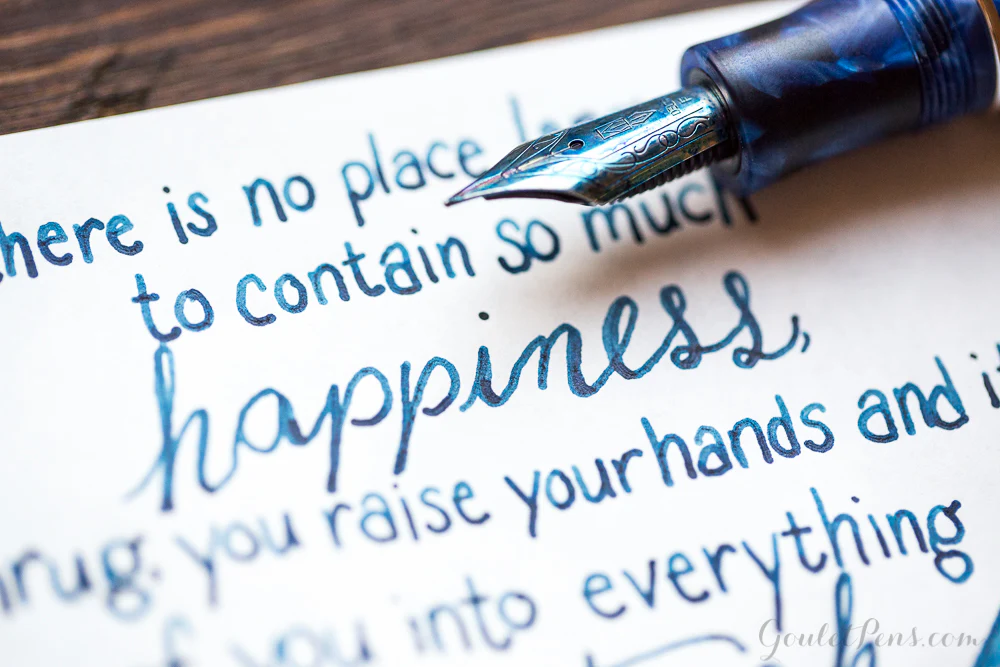 here is no place
to contain so much
happiness,
hrug. you raise your hands and it
you into everything
GouletPens.com